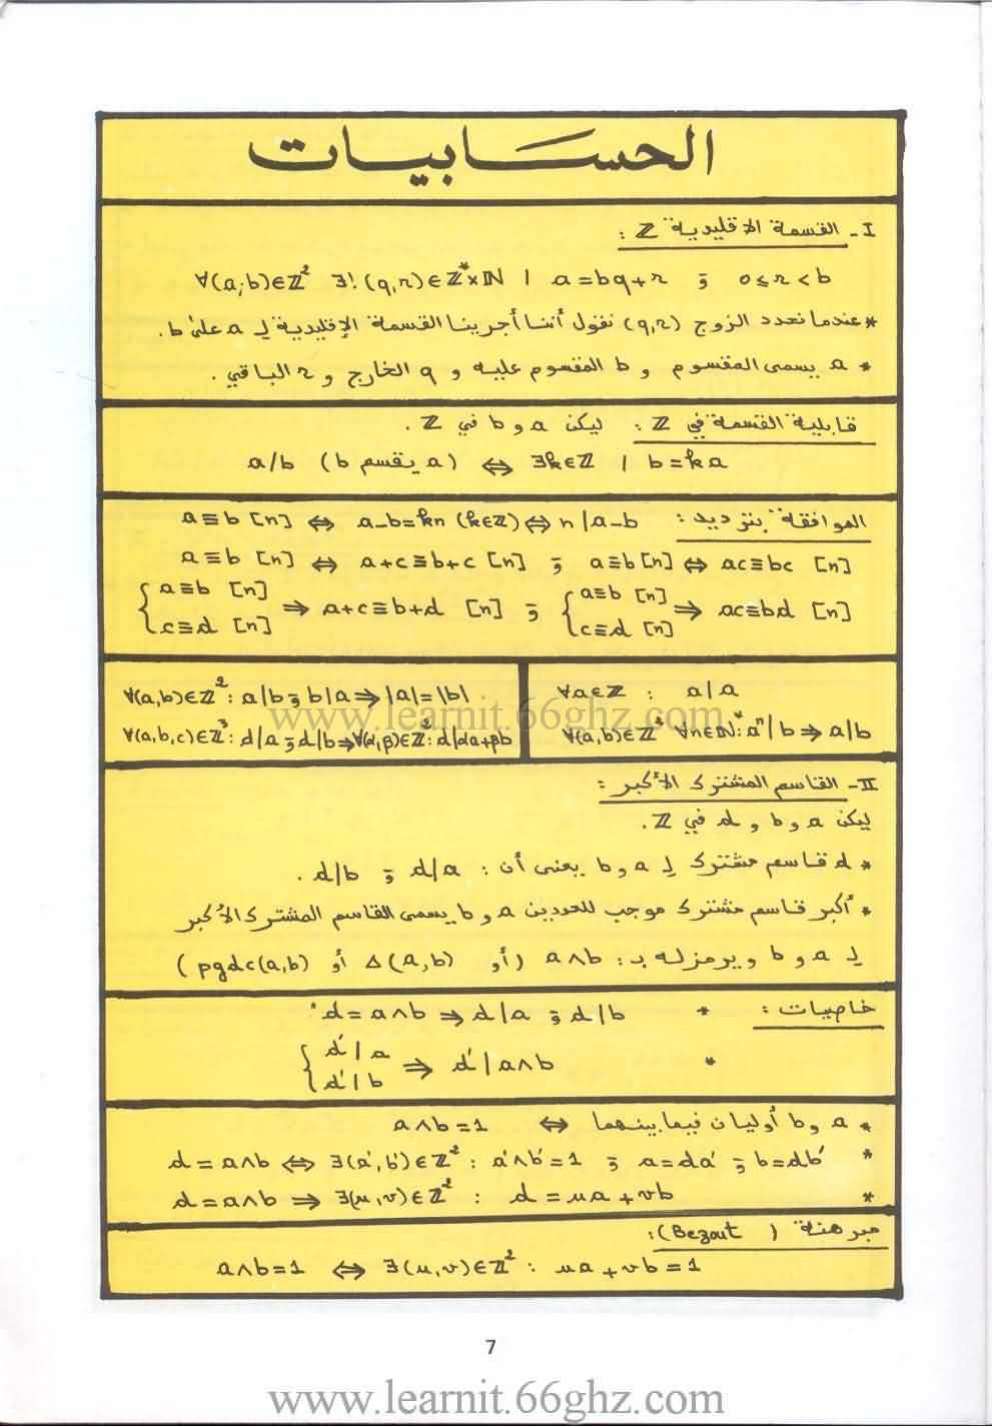 الحسابيات
I- القسمة الاقليدية ℤ :
∀(a;b)∈ℤ² ∃!(q,r)∈ℤ*×ℕ | a=bq+r و 0≤r<b
* عندما نحدد الزوج (q,r) نقول أننا أجرينا القسمة الإقليدية لـ a على b.
* a يسمى المقسوم و b المقسوم عليه و q الخارج و r الباقي .
قابلية القسمة في ℤ : ليكن a و b في ℤ .
a/b (a يقسم b) ⇔ ∃k∈ℤ | b=ka
الموافقة بترديد : a≡b [n] ⇔ a-b=kn (k∈ℤ) ⇔ n|a-b
a≡b [n] ⇔ a+c≡b+c [n] و a≡b[n] ⇔ ac≡bc [n]
{a≡b [n] c≡d [n] ⇒ a+c≡b+d [n] و {a≡b [n] c≡d [n] ⇒ ac≡bd [n]
∀(a,b)∈ℤ² : a|b و b|a ⇒ |a|=|b|
∀(a,b,c)∈ℤ³ : d|a و d|b ⇒ ∀(α,β)∈ℤ² : d|αa+βb
∀a∈ℤ : a|a
∀(a,b)∈ℤ² ∀n∈ℕ* : aⁿ|b ⇒ a|b
II- القاسم المشترك الأكبر :
ليكن a و b و d في ℤ.
* d قاسم مشترك لـ a و b يعني أن : d|a و d|b .
* أكبر قاسم مشترك موجب للعددين a و b يسمى القاسم المشترك الأكبر
لـ a و b ويرمز له بـ : a∧b (أو Δ(a,b) أو pgdc(a,b))
خاصيات : * d=a∧b ⇒ d|a و d|b
* {d'|a d'|b ⇒ d'|a∧b
* a و b أوليان فيما بينهما ⇔ a∧b=1
* d=a∧b ⇔ ∃(a',b')∈ℤ² : a'∧b'=1 و a=da' و b=db'
* d=a∧b ⇒ ∃(u,v)∈ℤ² : d=ua+vb
مبرهنة (Bezout):
a∧b=1 ⇔ ∃(u,v)∈ℤ² : ua+vb=1
7
www.learnit.66ghz.com
www.learnit.66ghz.com